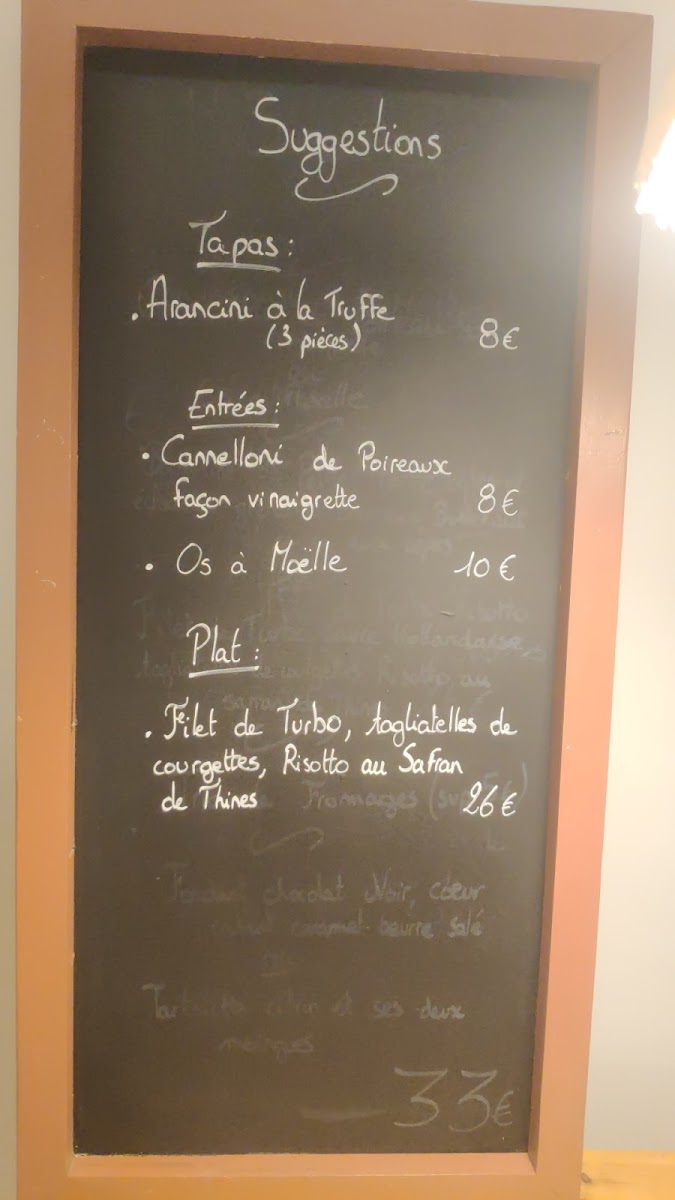 Suggestions
Tapas :
. Arancini à la Truffe
(3 pièces) 8€
Entrées :
. Cannelloni de Poireaux
façon vinaigrette 8€
. Os à Moëlle 10€
Plat :
. Filet de Turbo, tagliatelles de
courgettes, Risotto au Safran
de Thines 26€
Fromages
chocolat Noir, cœur
caramel beurre salé
citron et ses deux
33€